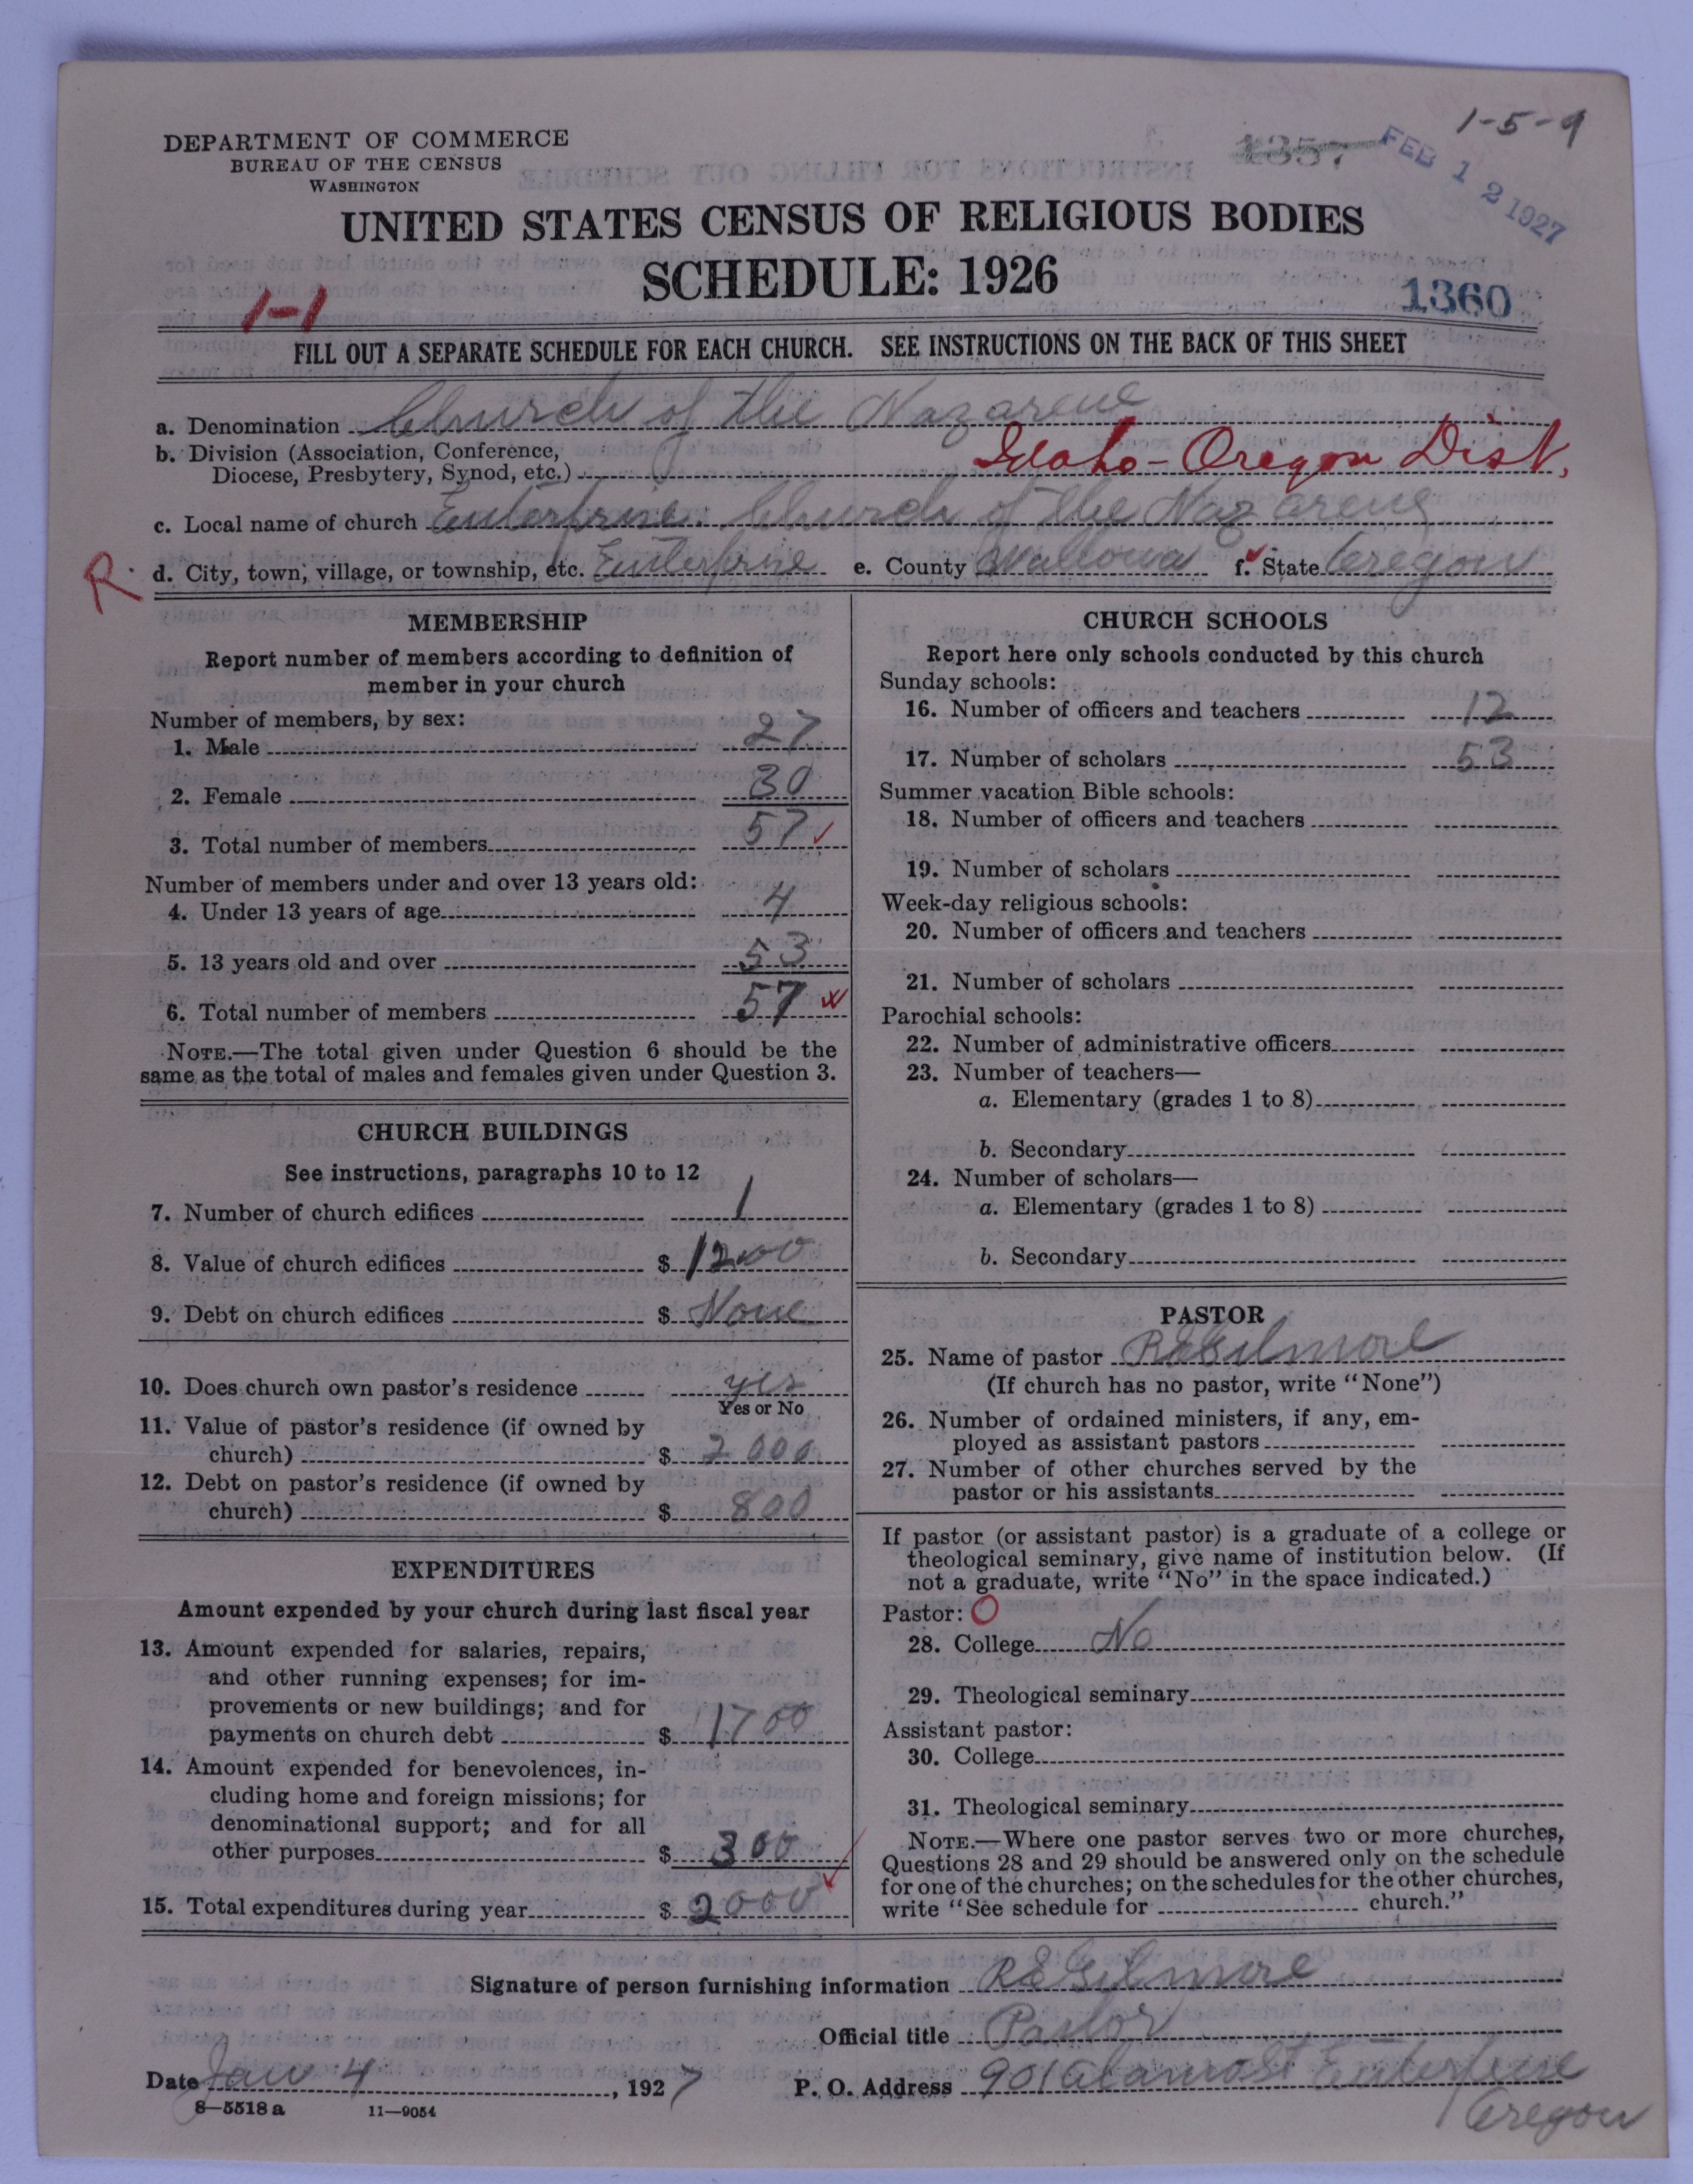 1-5-9
DEPARTMENT OF COMMERCE
BUREAU OF THE CENSUS
WASHINGTON
1357
FEB 12 1927
UNITED STATES CENSUS OF RELIGIOUS BODIES
SCHEDULE: 1926
1-1
1360
FILL OUT A SEPARATE SCHEDULE FOR EACH CHURCH. SEE INSTRUCTIONS ON THE BACK OF THIS SHEET
a. Denomination Church of the Nazarene
b. Division (Association, Conference,
Diocese, Presbytery, Synod, etc.) Idaho-Oregon Dist.
c. Local name of church Enterprise Church of the Nazarene
R. d. City, town, village, or township, etc. Enterprise e. County Wallowa f. State Oregon
MEMBERSHIP
Report number of members according to definition of
member in your church
Number of members, by sex:
1. Male 27
2. Female 30
3. Total number of members 57
Number of members under and over 13 years old:
4. Under 13 years of age 4
5. 13 years old and over 53
6. Total number of members 57
NOTE.—The total given under Question 6 should be the
same as the total of males and females given under Question 3.
CHURCH BUILDINGS
See instructions, paragraphs 10 to 12
7. Number of church edifices 1
8. Value of church edifices $ 1200
9. Debt on church edifices $ None
10. Does church own pastor's residence yes
Yes or No
11. Value of pastor's residence (if owned by
church) $ 2000
12. Debt on pastor's residence (if owned by
church) $ 800
EXPENDITURES
Amount expended by your church during last fiscal year
13. Amount expended for salaries, repairs,
and other running expenses; for im-
provements or new buildings; and for
payments on church debt $ 1700
14. Amount expended for benevolences, in-
cluding home and foreign missions; for
denominational support; and for all
other purposes $ 300
15. Total expenditures during year $ 2000
CHURCH SCHOOLS
Report here only schools conducted by this church
Sunday schools:
16. Number of officers and teachers 12
17. Number of scholars 53
Summer vacation Bible schools:
18. Number of officers and teachers
19. Number of scholars
Week-day religious schools:
20. Number of officers and teachers
21. Number of scholars
Parochial schools:
22. Number of administrative officers
23. Number of teachers—
a. Elementary (grades 1 to 8)
b. Secondary
24. Number of scholars—
a. Elementary (grades 1 to 8)
b. Secondary
PASTOR
25. Name of pastor R E Gilmore
(If church has no pastor, write "None")
26. Number of ordained ministers, if any, em-
ployed as assistant pastors
27. Number of other churches served by the
pastor or his assistants
If pastor (or assistant pastor) is a graduate of a college or
theological seminary, give name of institution below. (If
not a graduate, write "No" in the space indicated.)
Pastor: O
28. College No
29. Theological seminary
Assistant pastor:
30. College
31. Theological seminary
NOTE.—Where one pastor serves two or more churches,
Questions 28 and 29 should be answered only on the schedule
for one of the churches; on the schedules for the other churches,
write "See schedule for church."
Signature of person furnishing information R E Gilmore
Official title Pastor
Date Jan 4, 1927 P. O. Address 901 Alamo St Enterprise
Oregon
8—5518 a 11—9054